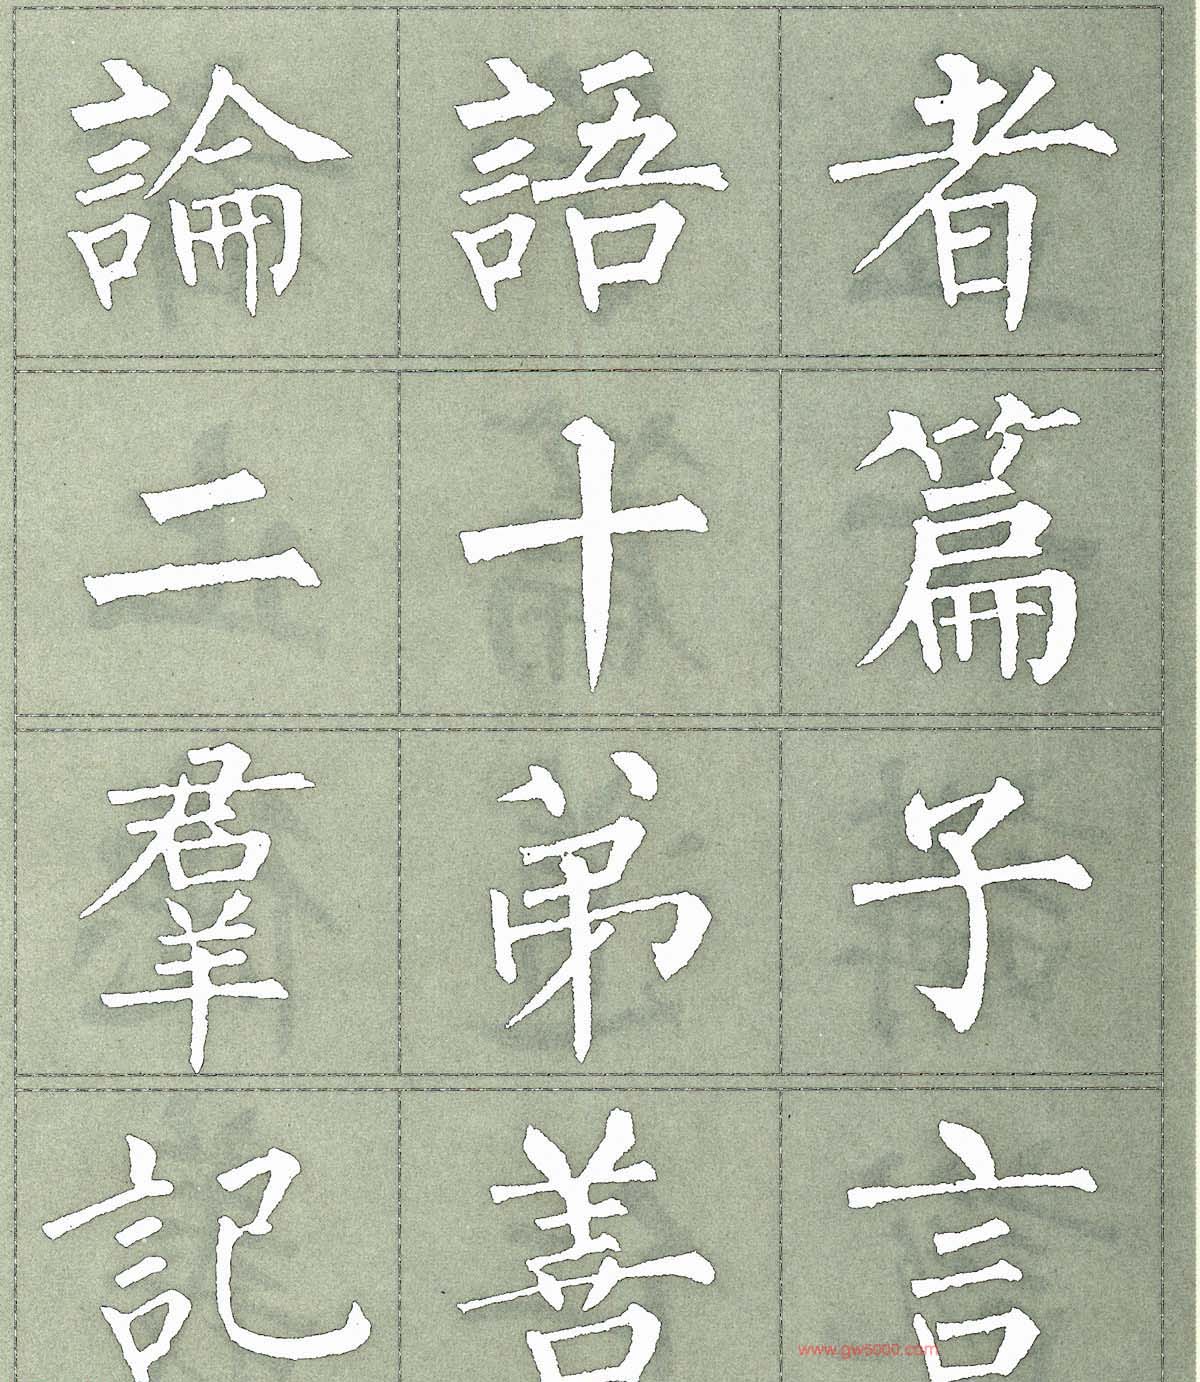 論語者
二十篇
羣弟子
記善言
www.gw5000.com